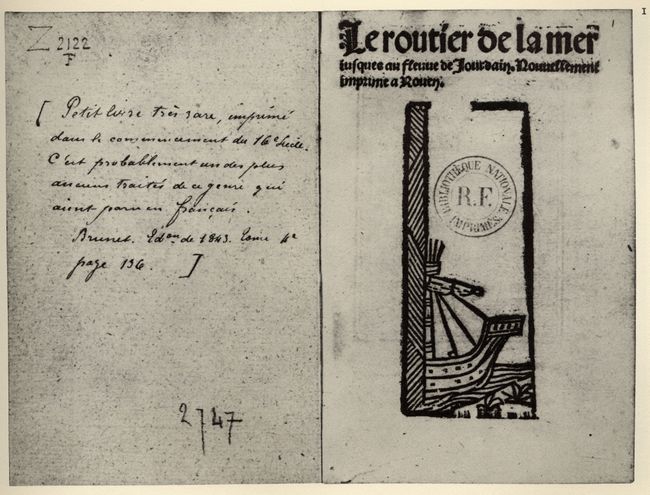 Z 2122
F
[ Petit livre très rare, imprimé
dans le commencement du 16e Siècle.
C'est probablement un des plus
anciens traités de ce genre qui
aient paru en français.
Brunet. Edon de 1843. Tome 4e
page 136. ]
2747
1
Le routier de la mer
iusques au fleuue de Jourdain. Nouuellement
imprime a Rouen.
BIBLIOTHÈQUE NATIONALE
R.F
IMPRIMÉS